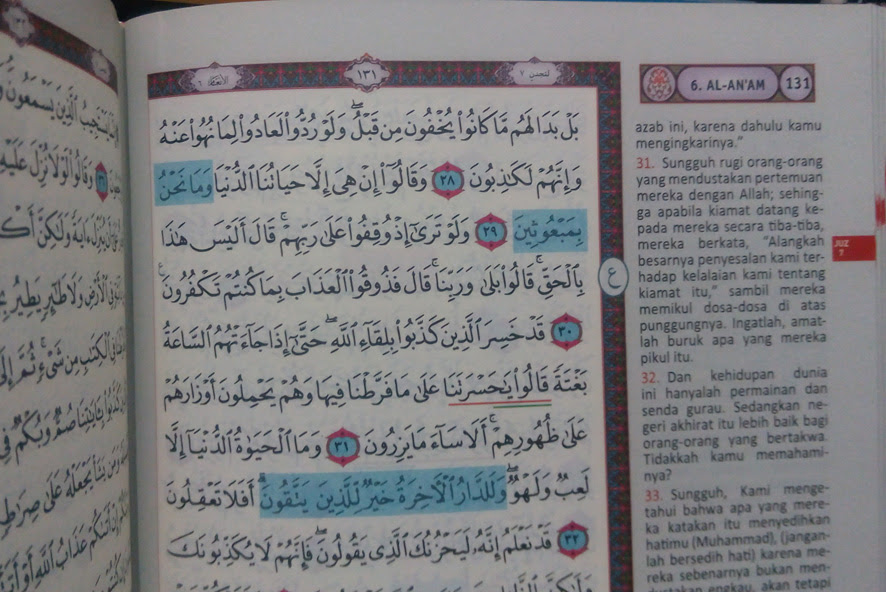 الأنعام ٦
١٣١
الجزء ٧
بَلْ بَدَا لَهُم مَّا كَانُوا۟ يُخْفُونَ مِن قَبْلُ ۖ وَلَوْ رُدُّوا۟ لَعَادُوا۟ لِمَا نُهُوا۟ عَنْهُ
وَإِنَّهُمْ لَكَـٰذِبُونَ ٢٨ وَقَالُوٓا۟ إِنْ هِىَ إِلَّا حَيَاتُنَا ٱلدُّنْيَا وَمَا نَحْنُ
بِمَبْعُوثِينَ ٢٩ وَلَوْ تَرَىٰٓ إِذْ وُقِفُوا۟ عَلَىٰ رَبِّهِمْ ۚ قَالَ أَلَيْسَ هَـٰذَا
بِٱلْحَقِّ ۚ قَالُوا۟ بَلَىٰ وَرَبِّنَا ۚ قَالَ فَذُوقُوا۟ ٱلْعَذَابَ بِمَا كُنتُمْ تَكْفُرُونَ
٣٠ قَدْ خَسِرَ ٱلَّذِينَ كَذَّبُوا۟ بِلِقَآءِ ٱللَّهِ ۖ حَتَّىٰٓ إِذَا جَآءَتْهُمُ ٱلسَّاعَةُ
بَغْتَةً قَالُوا۟ يَـٰحَسْرَتَنَا عَلَىٰ مَا فَرَّطْنَا فِيهَا وَهُمْ يَحْمِلُونَ أَوْزَارَهُمْ
عَلَىٰ ظُهُورِهِمْ ۚ أَلَا سَآءَ مَا يَزِرُونَ ٣١ وَمَا ٱلْحَيَوٰةُ ٱلدُّنْيَآ إِلَّا
لَعِبٌ وَلَهْوٌ ۖ وَلَلدَّارُ ٱلْـَٔاخِرَةُ خَيْرٌ لِّلَّذِينَ يَتَّقُونَ ۗ أَفَلَا تَعْقِلُونَ
٣٢ قَدْ نَعْلَمُ إِنَّهُۥ لَيَحْزُنُكَ ٱلَّذِى يَقُولُونَ ۖ فَإِنَّهُمْ لَا يُكَذِّبُونَكَ
ع
6. AL-AN'AM 131
azab ini, karena dahulu kamu
mengingkarinya."
31. Sungguh rugi orang-orang
yang mendustakan pertemuan
mereka dengan Allah; sehing-
ga apabila kiamat datang ke-
pada mereka secara tiba-tiba,
mereka berkata, "Alangkah
besarnya penyesalan kami ter-
hadap kelalaian kami tentang
kiamat itu," sambil mereka
memikul dosa-dosa di atas
punggungnya. Ingatlah, amat-
lah buruk apa yang mereka
pikul itu.
32. Dan kehidupan dunia
ini hanyalah permainan dan
senda gurau. Sedangkan ne-
geri akhirat itu lebih baik bagi
orang-orang yang bertakwa.
Tidakkah kamu memahami-
nya?
33. Sungguh, Kami menge-
tahui bahwa apa yang mere-
ka katakan itu menyedihkan
hatimu (Muhammad), (jangan-
lah bersedih hati) karena me-
reka sebenarnya bukan men-
dustakan engkau, akan tetapi
JUZ
7